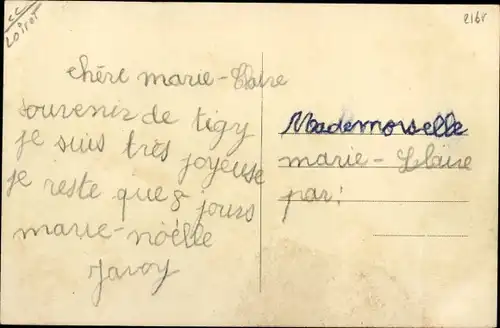 cc
Loiret
2168
chère marie-Claire
souvenir de tigy
je suis très joyeuse
je reste que 8 jours
marie-noëlle
Javoy
Mademorselle
marie-Claire
par: